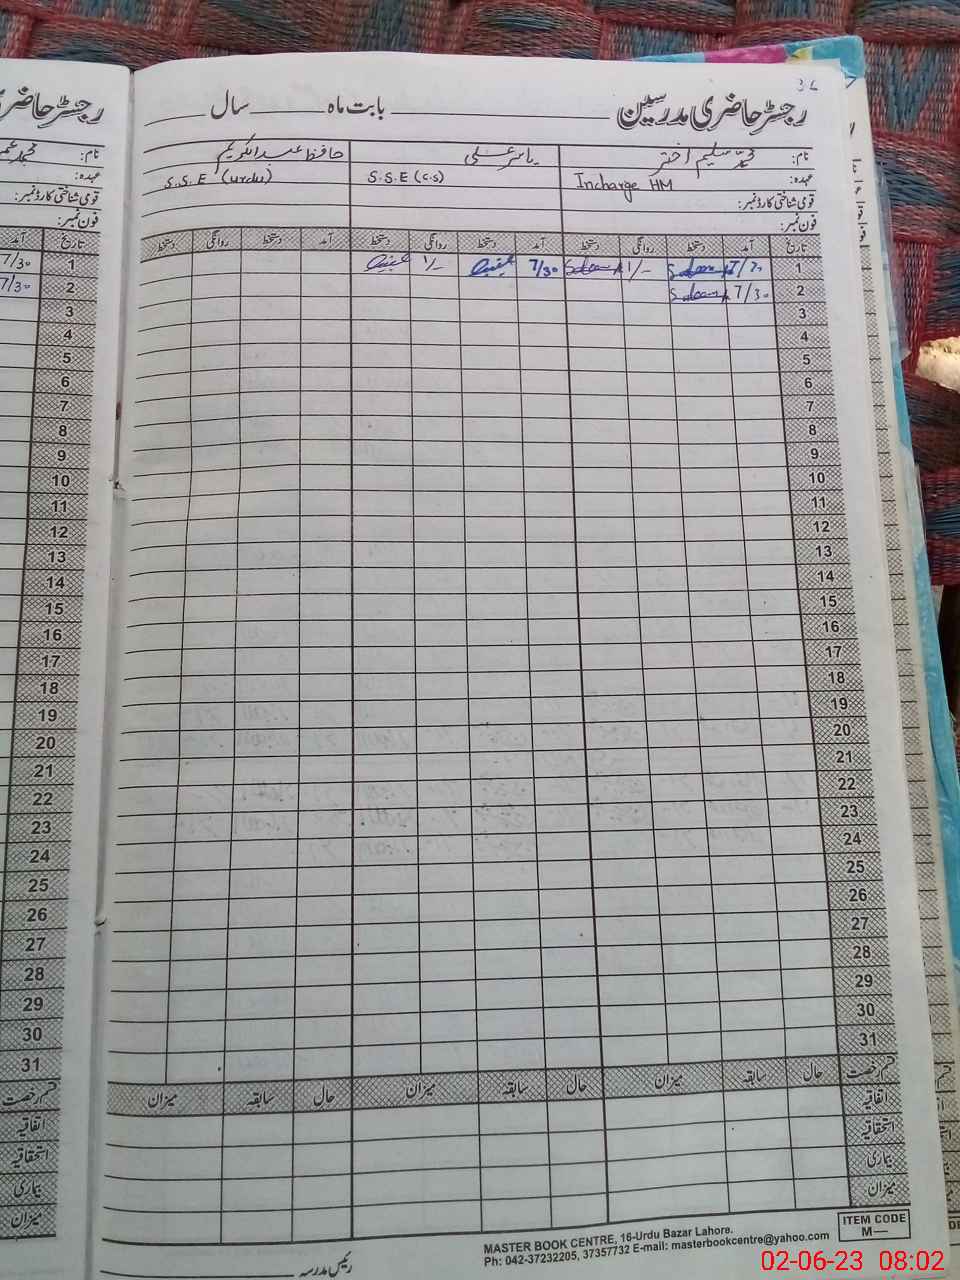 32
رجسٹر حاضری مدرسین ـــــ بابت ماہ ـــــ سال ـــــ
نام: محمد سلیم اختر یاسر علی حافظ عبدالکریم
عہدہ: Incharge HM S.S.E (C.S) S.S.E (Urdu)
قومی شناختی کارڈ نمبر:
فون نمبر:
تاریخ آمد دستخط روانگی دستخط آمد دستخط روانگی دستخط آمد دستخط روانگی دستخط
1 7/30 Saleem 1/- Saleem 7/30 1/-
2 7/30 Saleem
3
4
5
6
7
8
9
10
11
12
13
14
15
16
17
18
19
20
21
22
23
24
25
26
27
28
29
30
31
قسم رخصت حال سابقہ میزان حال سابقہ میزان حال سابقہ میزان
اتفاقیہ
استحقاقیہ
بیماری
میزان
رئیس مدرسہ
MASTER BOOK CENTRE, 16-Urdu Bazar Lahore.
Ph: 042-37232205, 37357732 E-mail: masterbookcentre@yahoo.com
ITEM CODE
M—
رجسٹر حاضری
نام:
عہدہ:
قومی شناختی کارڈ نمبر:
فون نمبر:
تاریخ آمد
1 7/30
2 7/30
3
4
5
6
7
8
9
10
11
12
13
14
15
16
17
18
19
20
21
22
23
24
25
26
27
28
29
30
31
قسم رخصت
اتفاقیہ
استحقاقیہ
بیماری
میزان
02-06-23 08:02